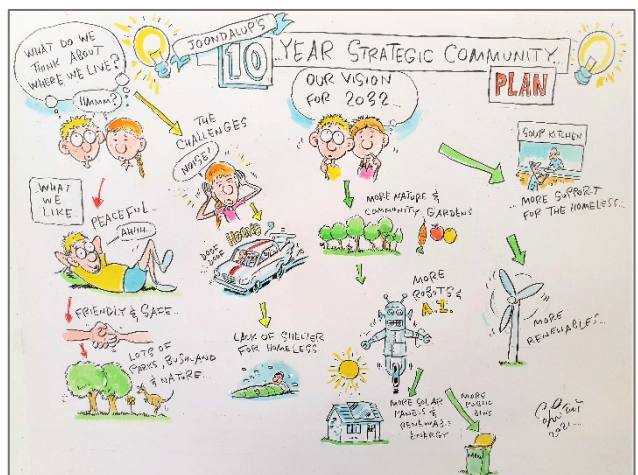 JOONDALUP'S
10 YEAR STRATEGIC COMMUNITY
PLAN
WHAT DO WE
THINK ABOUT
WHERE WE LIVE?
HMMM?
WHAT
WE
LIKE
PEACEFUL
AHHH...
FRIENDLY & SAFE...
LOTS OF
PARKS, BUSHLAND
& NATURE...
THE
CHALLENGES
NOISE!
HONK
DOOF
DOOF
LACK OF SHELTER
FOR HOMELESS...
OUR VISION
FOR 2032...
MORE NATURE &
COMMUNITY GARDENS
MORE
ROBOTS &
A.I.
MORE SOLAR
PANELS &
RENEWABLE
ENERGY
MORE
PUBLIC
BINS
SOUP KITCHEN
MORE SUPPORT
FOR THE HOMELESS...
MORE
RENEWABLES...
2021...